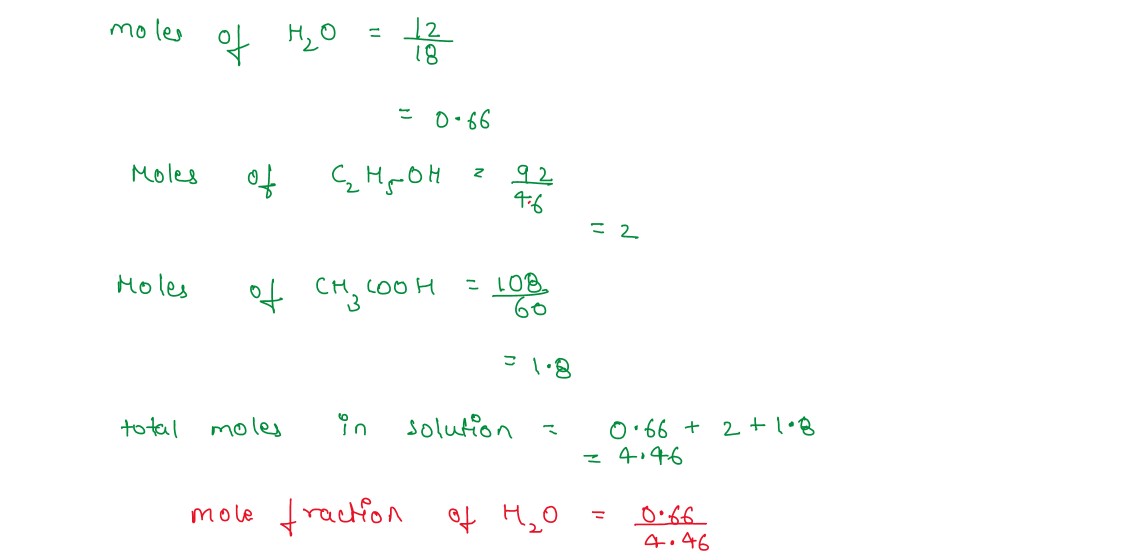 moles of H₂O = 12/18
= 0.66
Moles of C₂H₅OH = 92/46
= 2
Moles of CH₃COOH = 108/60
= 1.8
total moles in solution = 0.66 + 2 + 1.8
= 4.46
mole fraction of H₂O = 0.66/4.46